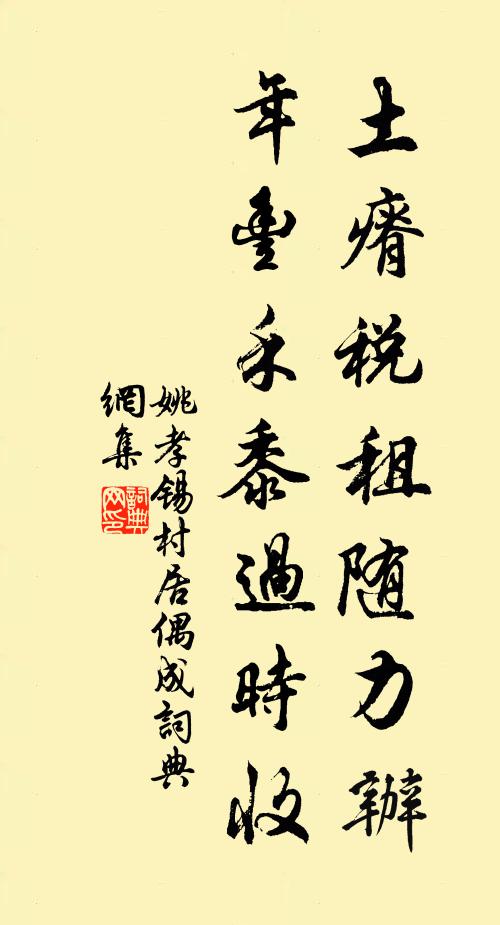 土瘠税租随力辦
年豐禾黍過時收
姚孝锡村居偶成詞典
網集
詞典
网印